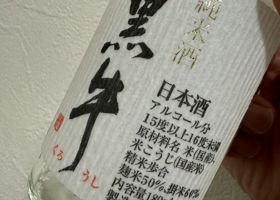 純米酒
黒牛
くろうし
日本酒
アルコール分
15度以上16度未満
原材料名 米(国産)、
米こうじ(国産米)
精米歩合
麹米50%、掛米60%
内容量180